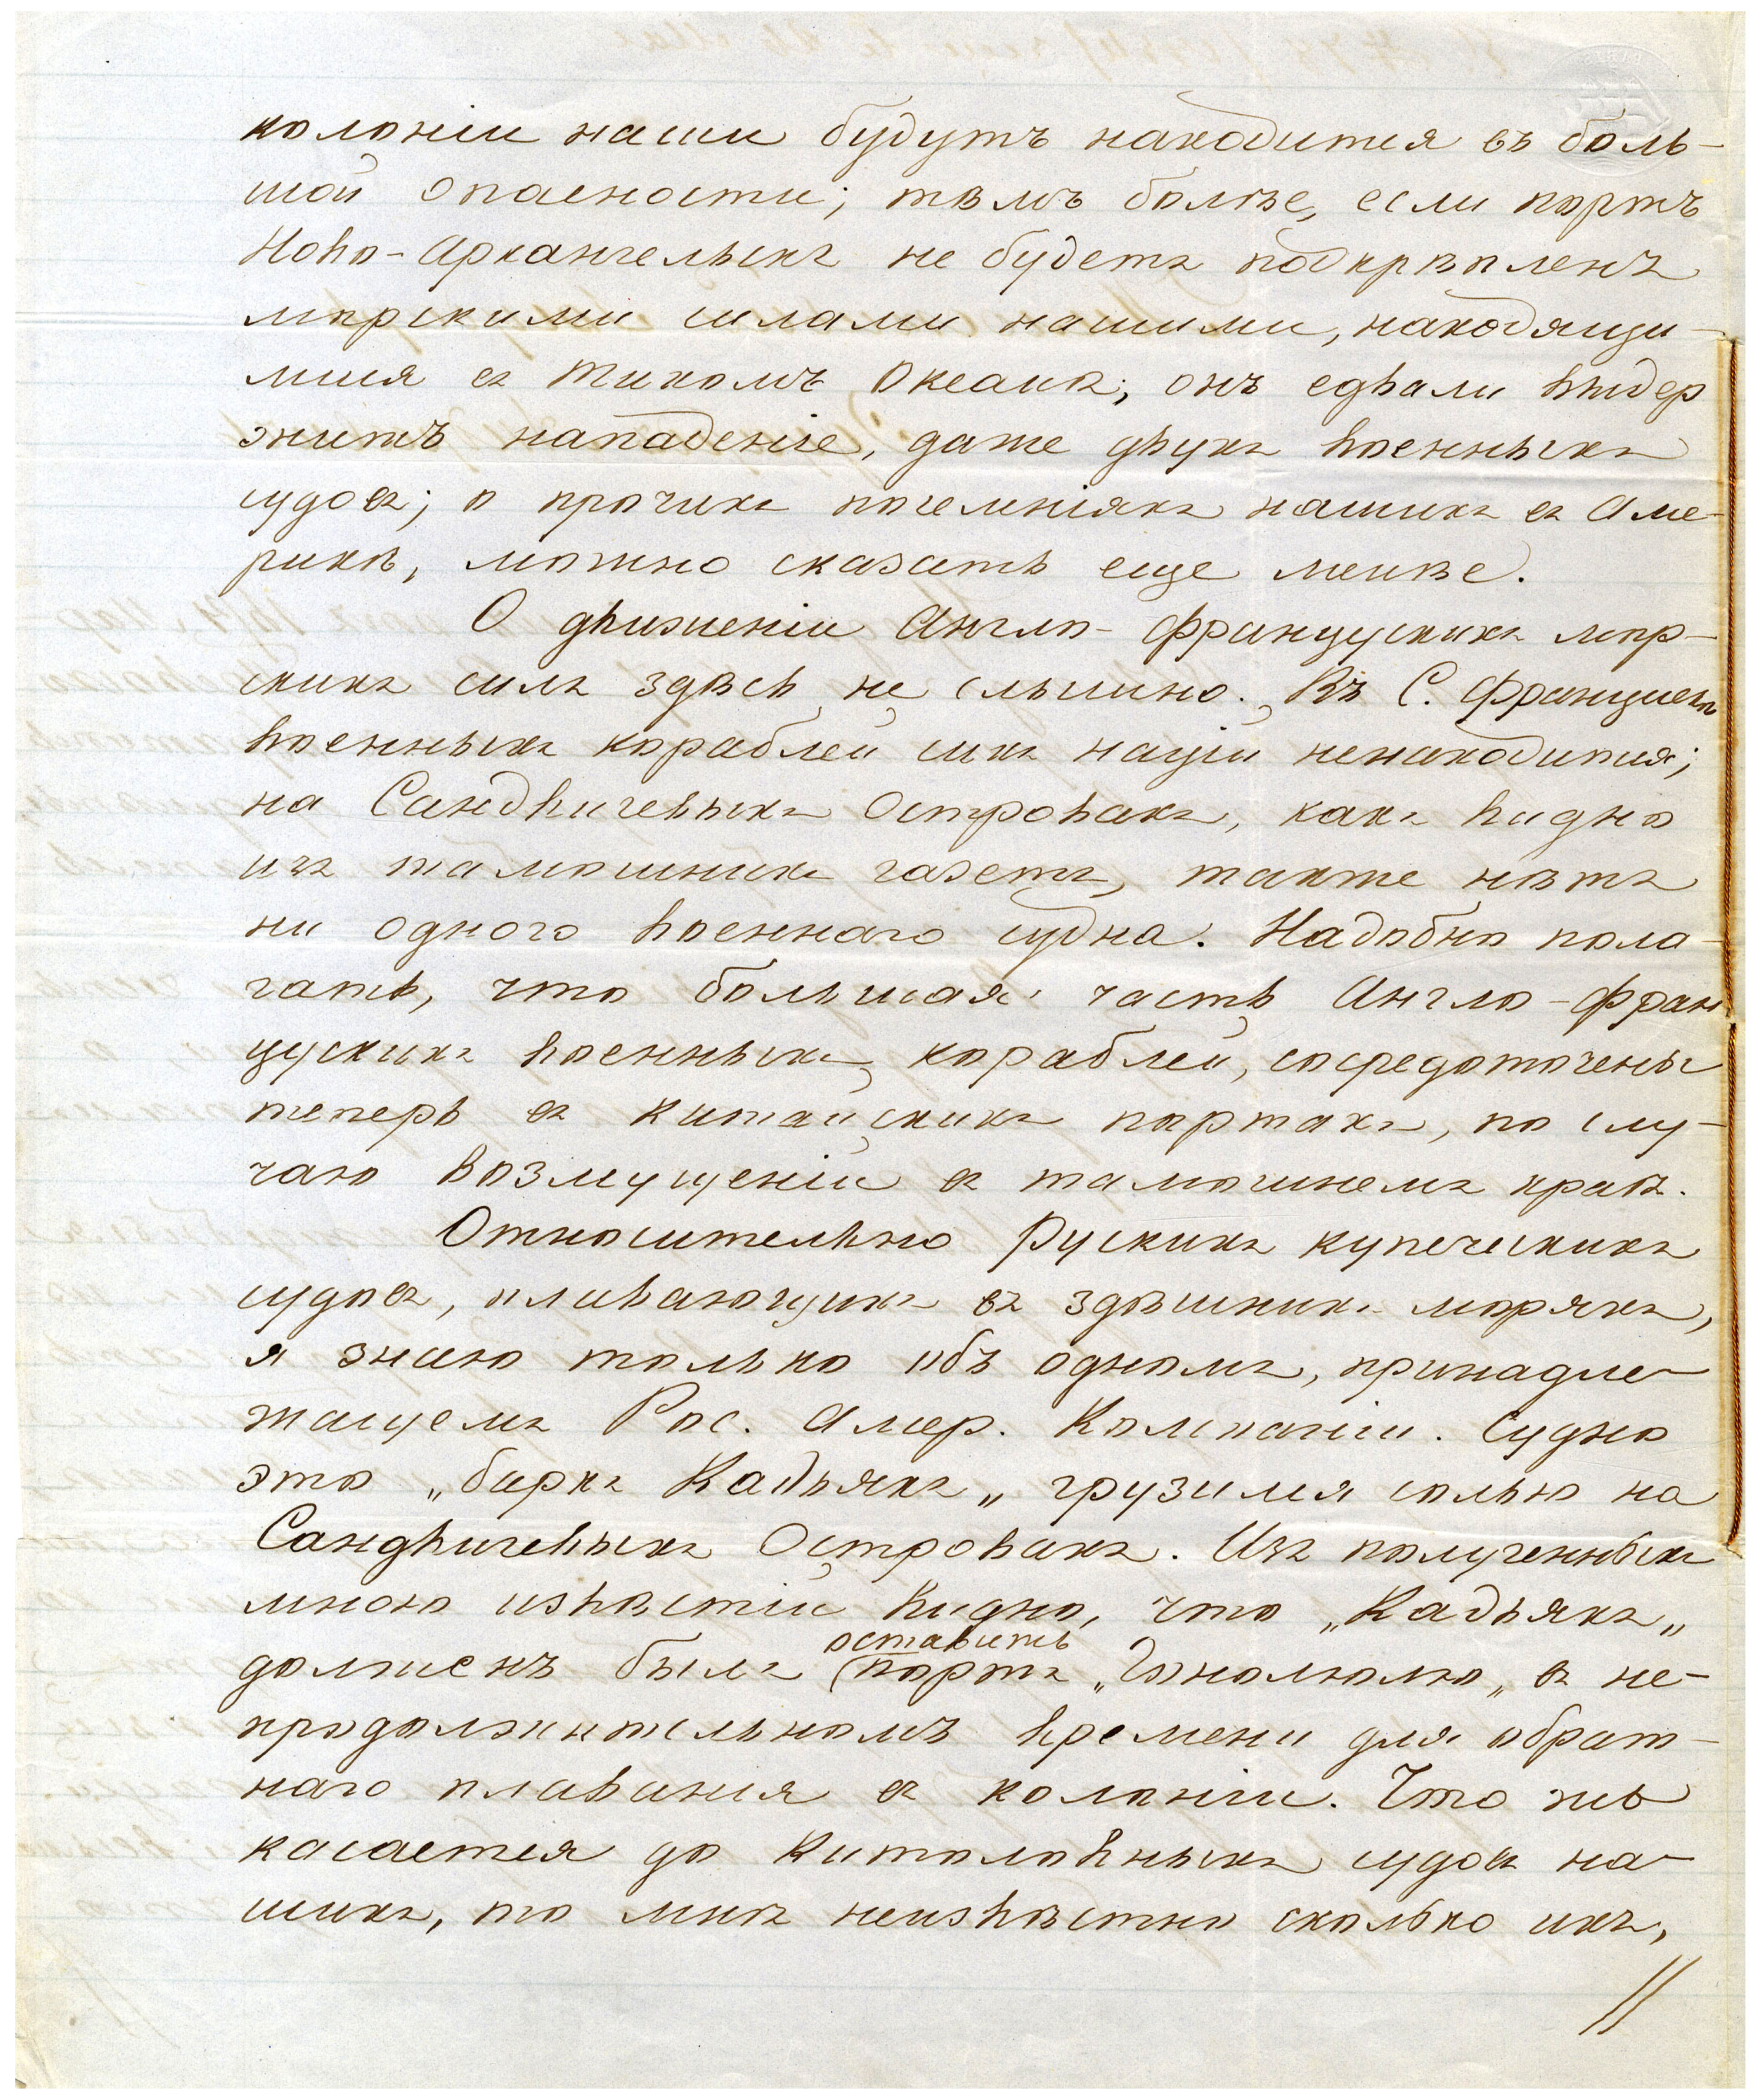 колоніи наши будутъ находится въ боль-
шой опасности; тѣмъ болѣе, если портъ
Ново-Архангельскъ не будетъ подкрѣпленъ
морскими силами нашими, находящи-
мися въ Тихомъ Океанѣ; онъ едвали выдер
житъ нападеніе, даже двухъ военныхъ
судовъ; о прочихъ поселеніяхъ нашихъ въ Аме-
рикѣ, можно сказать еще менѣе.
О движеніи Англо-французскихъ мор-
скихъ силъ здѣсь не слышно. Въ С. Франциско
военныхъ кораблей сихъ націй ненаходится;
на Сандвичевыхъ Островахъ, какъ видно
изъ тамошнихъ газетъ, также нѣтъ
ни одного военнаго судна. Надобно пола-
гать, что большая часть Англо-Фран
цускихъ военныхъ кораблей, сосредоточены
теперь въ Китайскихъ портахъ, по слу-
чаю возмущеній въ тамошнемъ краѣ.
Относительно Рускихъ купеческихъ
судовъ, плавающихъ въ здѣшнихъ моряхъ,
я знаю только объ одномъ, принадле-
жащемъ Рос. Амер. Компаніи. Судно
это „баркъ Кадьякъ„ грузился солью на
Сандвичевыхъ Островахъ. Изъ полученныхъ
мною извѣстій видно, что „Кадьякъ„
оставить
долженъ былъ (портъ „Гонолюлю„ въ не-
продолжительномъ времени для обрат-
наго плаванія въ колоніи. Что же
касается до Китоловныхъ судовъ на-
шихъ, то мнѣ неизвѣстно сколько ихъ,